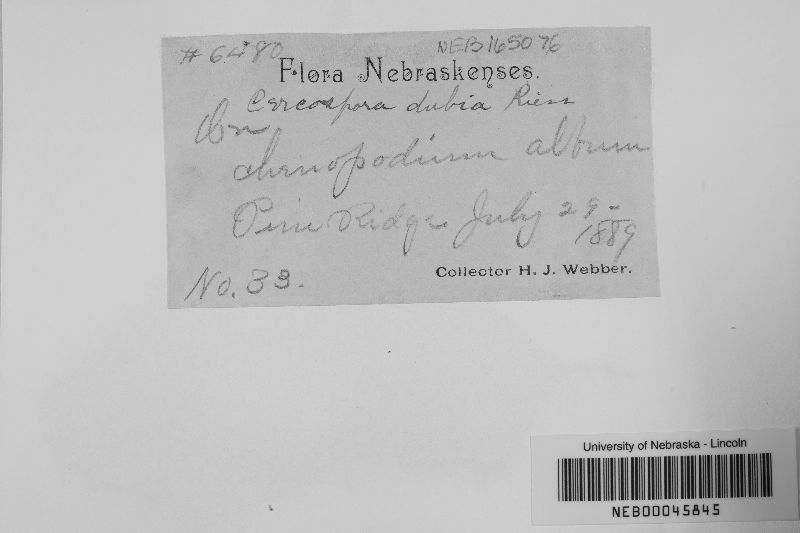 #6480 NEB165076
Flora Nebraskenses.
Cercospora dubia Riess
On
chenopodium album
Pine Ridge July 29-
1889
No. 33.
Collector H. J. Webber.
University of Nebraska - Lincoln
NEB00045845